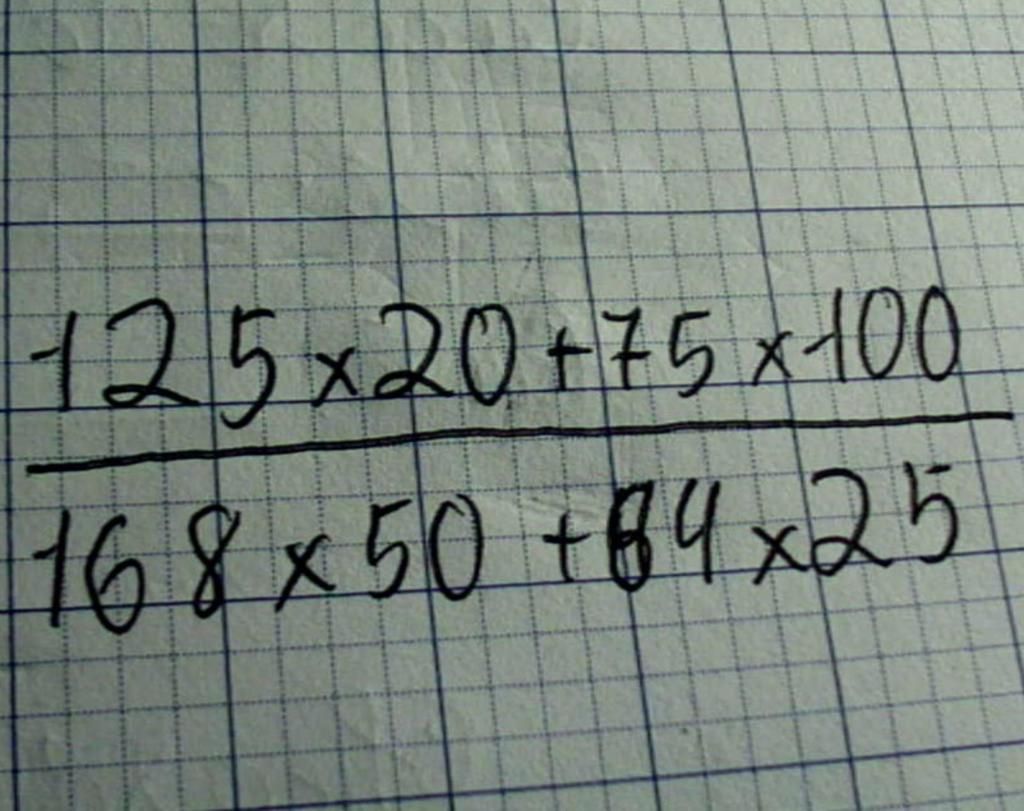 125×20+75×100
168×50+84×25